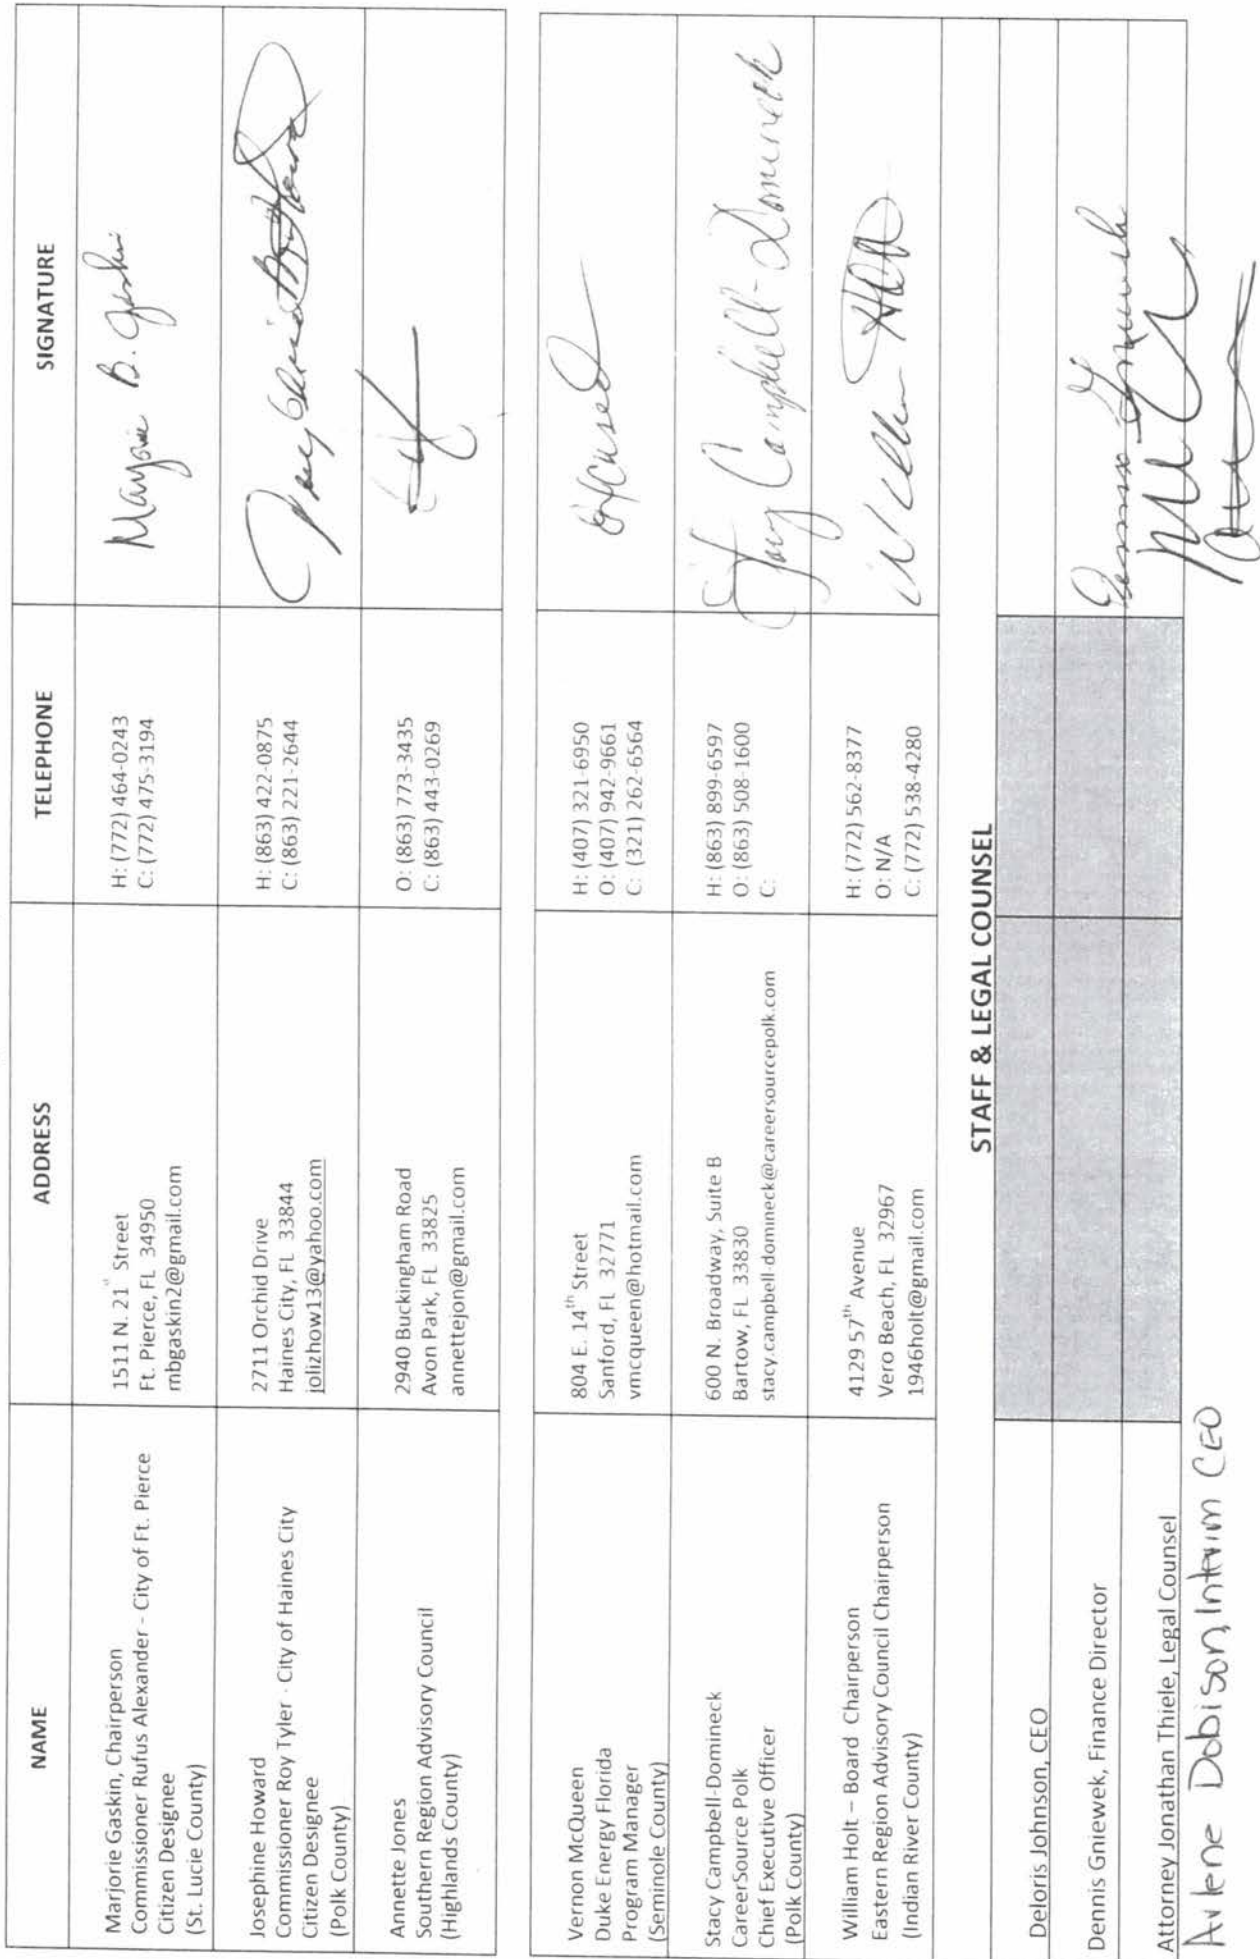 NAME
ADDRESS
TELEPHONE
SIGNATURE
Marjorie Gaskin, Chairperson
Commissioner Rufus Alexander - City of Ft. Pierce
Citizen Designee
(St. Lucie County)
1511 N. 21st Street
Ft. Pierce, FL 34950
mbgaskin2@gmail.com
H: (772) 464-0243
C: (772) 475-3194
Marjorie B. Gaskin
Josephine Howard
Commissioner Roy Tyler - City of Haines City
Citizen Designee
(Polk County)
2711 Orchid Drive
Haines City, FL 33844
jolizhow13@yahoo.com
H: (863) 422-0875
C: (863) 221-2644
Annette Jones
Southern Region Advisory Council
(Highlands County)
2940 Buckingham Road
Avon Park, FL 33825
annettejon@gmail.com
O: (863) 773-3435
C: (863) 443-0269
Vernon McQueen
Duke Energy Florida
Program Manager
(Seminole County)
804 E. 14th Street
Sanford, FL 32771
vmcqueen@hotmail.com
H: (407) 321-6950
O: (407) 942-9661
C: (321) 262-6564
Excused
Stacy Campbell-Domineck
CareerSource Polk
Chief Executive Officer
(Polk County)
600 N. Broadway, Suite B
Bartow, FL 33830
stacy.campbell-domineck@careersourcepolk.com
H: (863) 899-6597
O: (863) 508-1600
C:
Stacy Campbell-Domineck
William Holt – Board Chairperson
Eastern Region Advisory Council Chairperson
(Indian River County)
4129 57th Avenue
Vero Beach, FL 32967
1946holt@gmail.com
H: (772) 562-8377
O: N/A
C: (772) 538-4280
William Holt
STAFF & LEGAL COUNSEL
Deloris Johnson, CEO
Dennis Gniewek, Finance Director
Dennis Gniewek
Attorney Jonathan Thiele, Legal Counsel
Arlene Dobison, Interim CEO